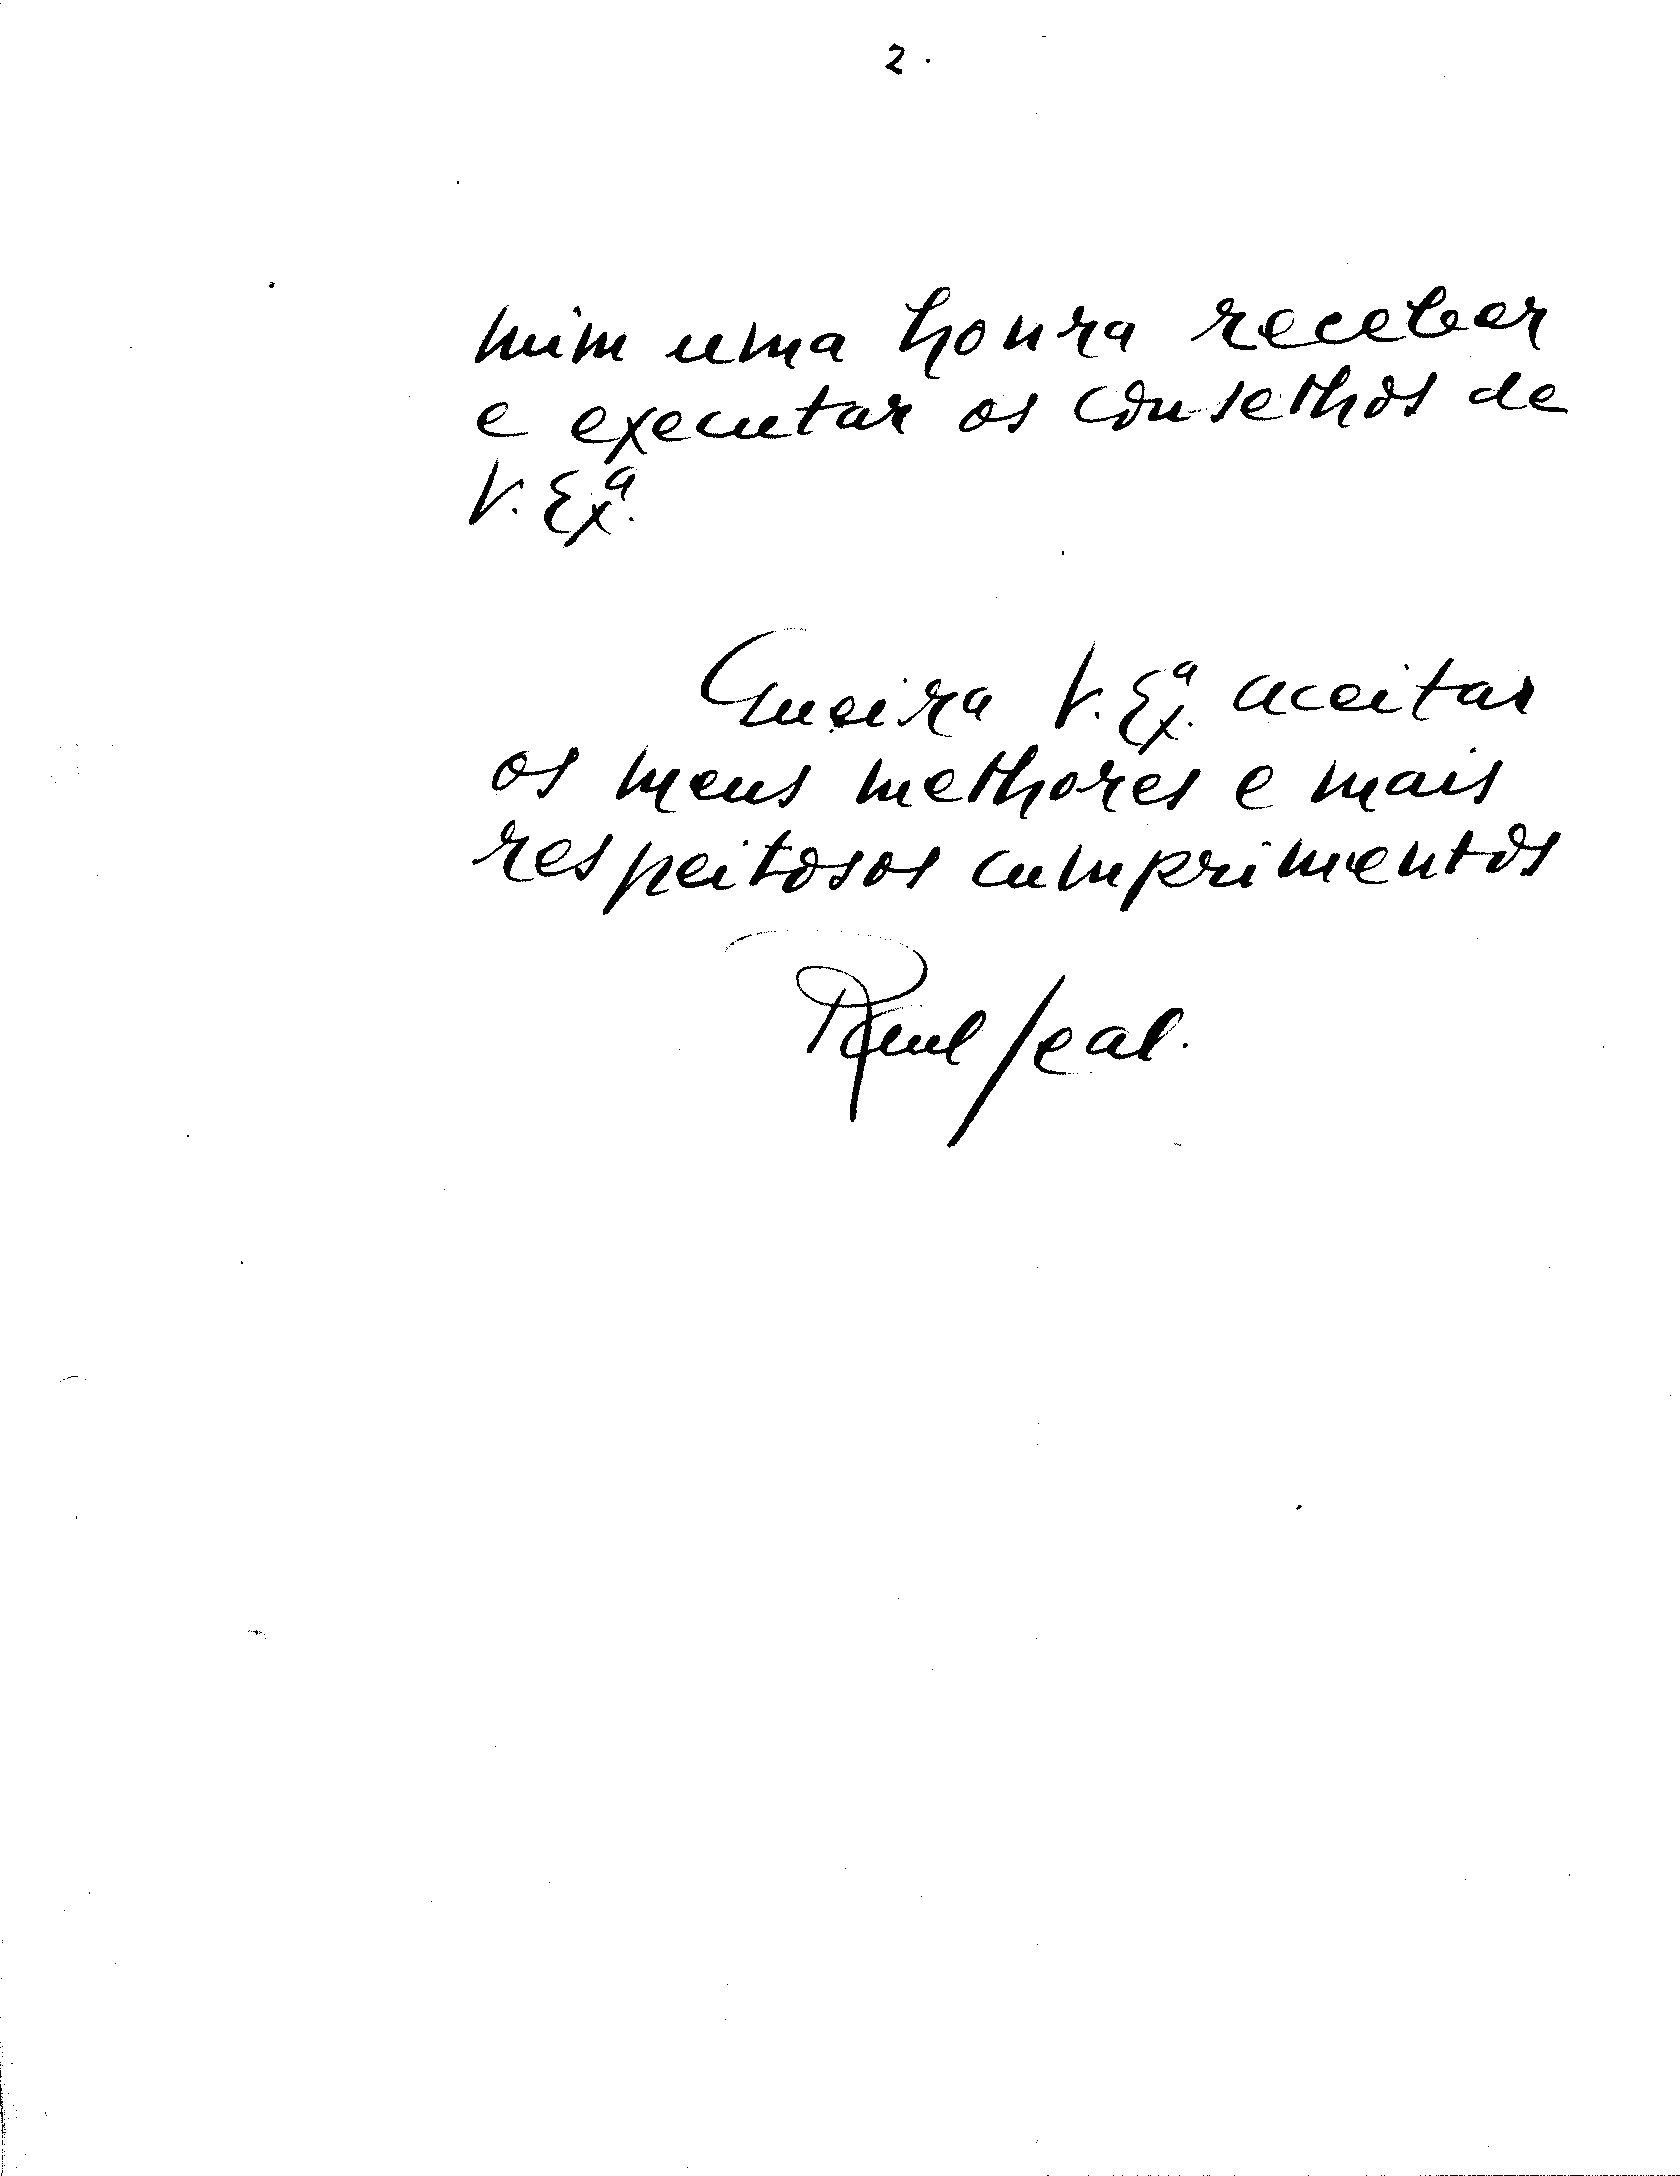 2.
mim uma honra receber
e executar os conselhos de
V. Exª.
Queira V. Exª. aceitar
os meus melhores e mais
respeitosos cumprimentos
Raul Leal.